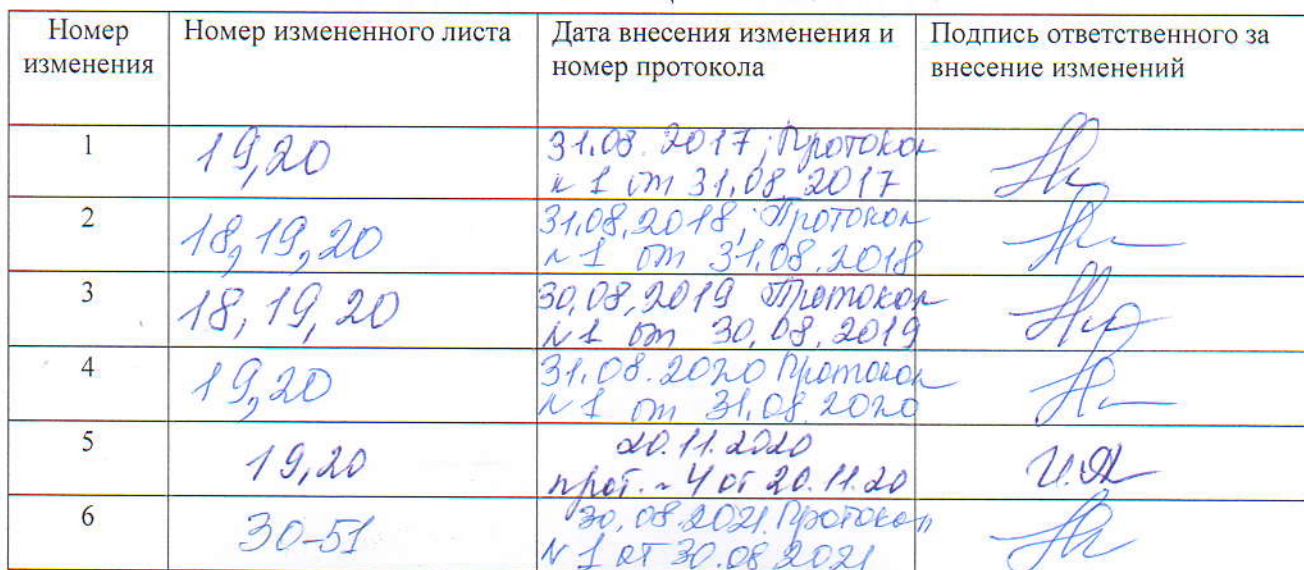 Номер изменения
Номер измененного листа
Дата внесения изменения и номер протокола
Подпись ответственного за внесение изменений
1
19,20
31.08.2017; Протокол
н 1 от 31.08.2017
2
18,19,20
31.08.2018; Протокол
н 1 от 31.08.2018
3
18,19,20
30.08.2019 Протокол
N 1 от 30.08.2019
4
19,20
31.08.2020 Протокол
N 1 от 31.08.2020
5
19,20
20.11.2020
прот. ~ 4 от 20.11.20
6
30-51
30.08.2021. Протокол
N 1 от 30.08.2021